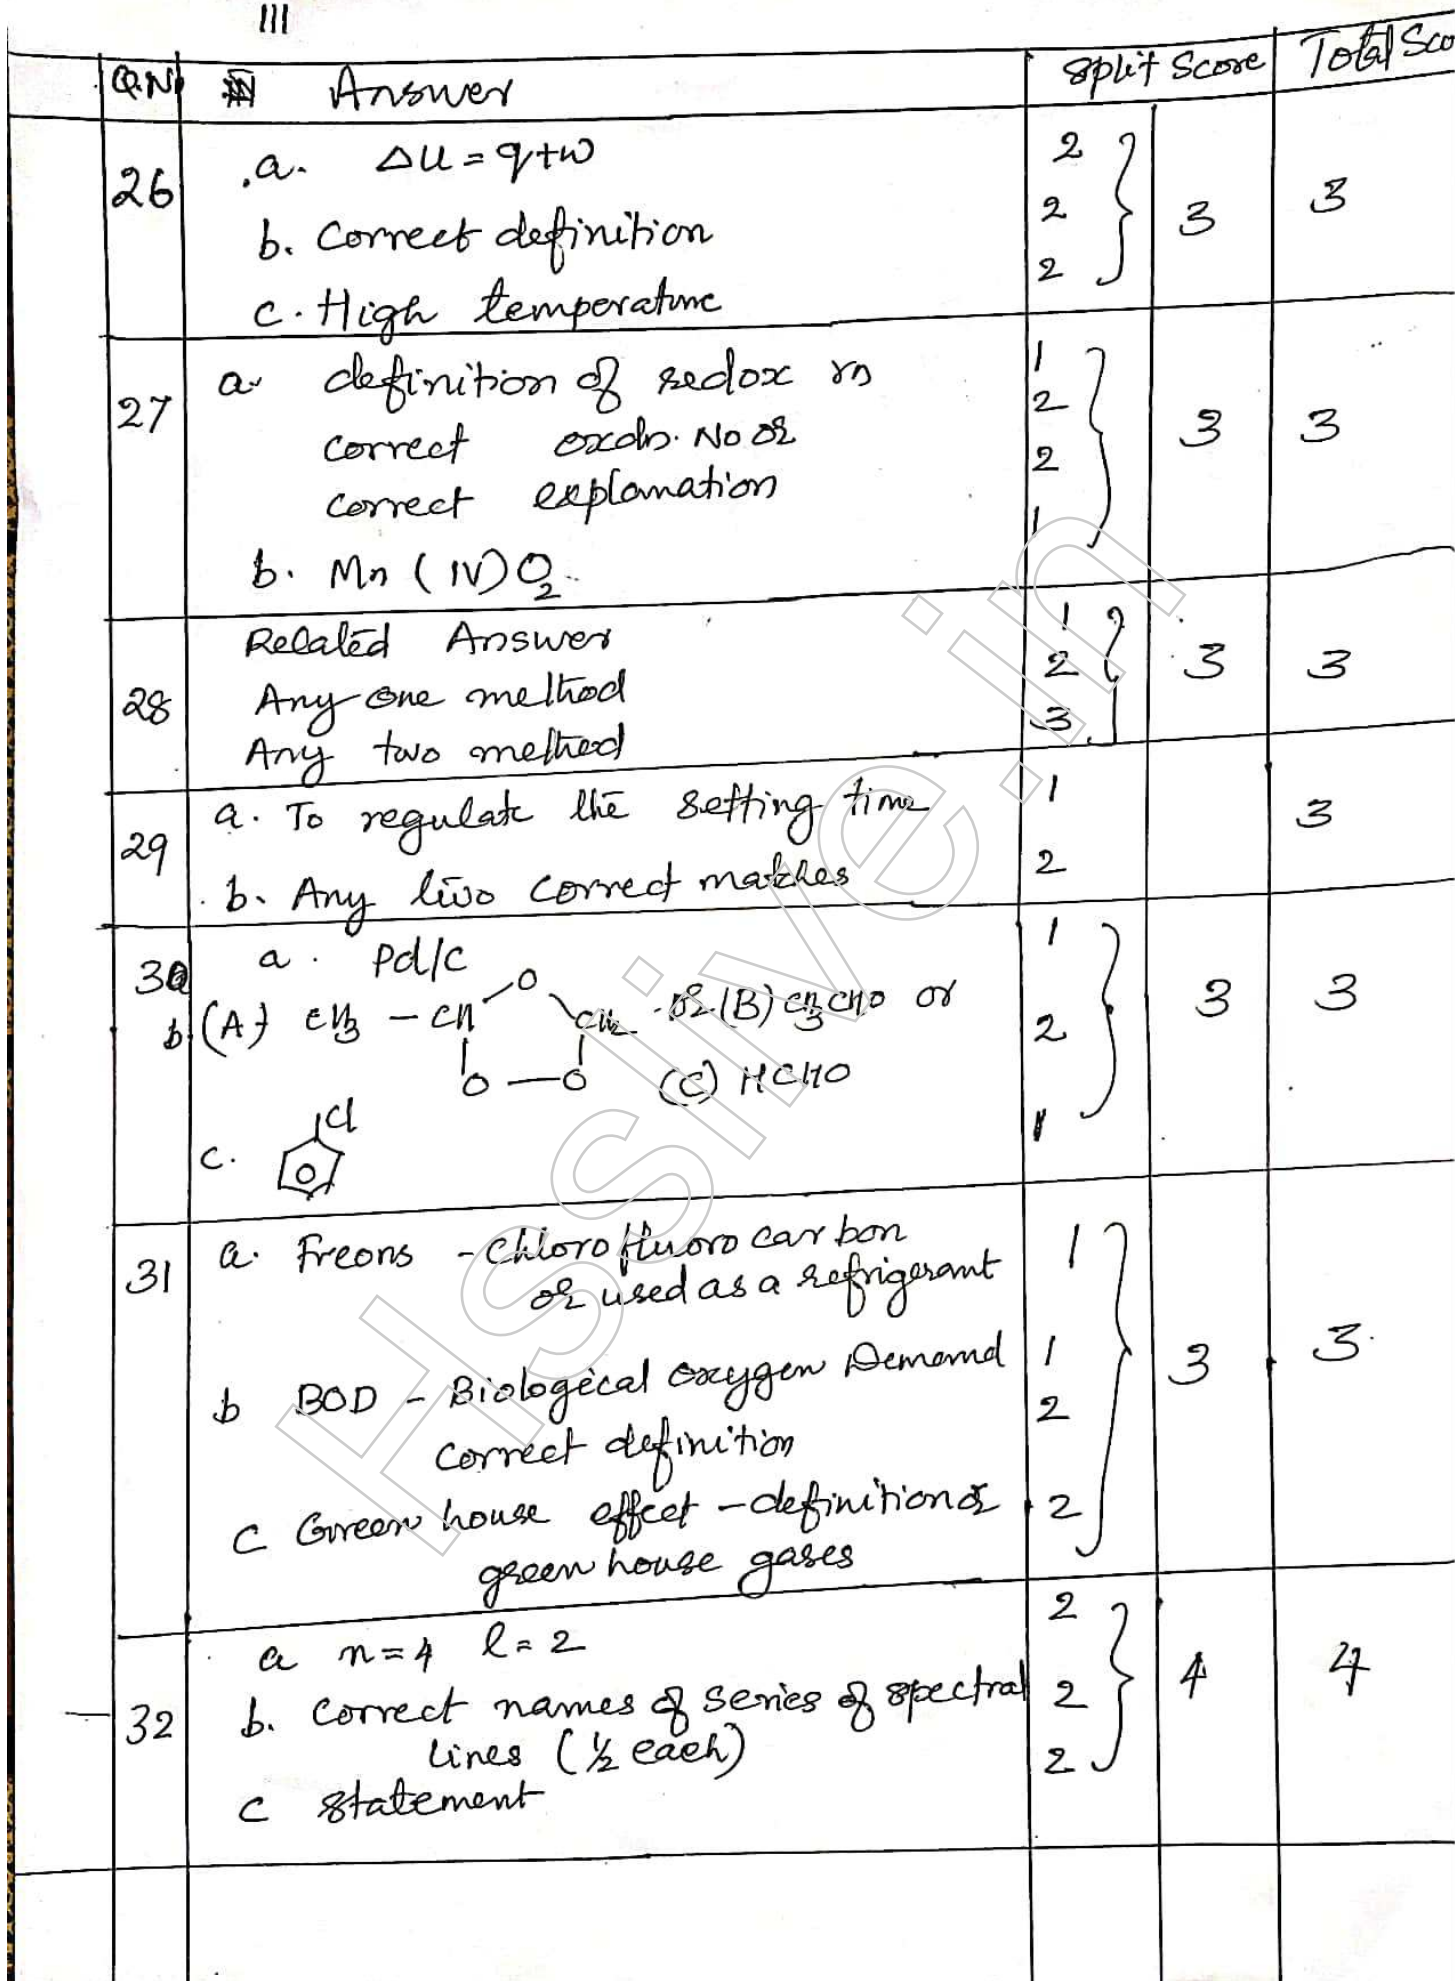 III
Q.N Answer Split Score Total Sco
26 a. ΔU = q+w 2 3 3
b. Correct definition 2
c. High temperature 2
27 a. definition of redox rn 1 3 3
correct oxdn. No or 2
correct explanation 2
b. Mn (IV) O2 1
28 Related Answer 1 3 3
Any one method 2
Any two method 3
29 a. To regulate the setting time 1 3
b. Any two correct matches 2
30 a. Pd/C 1 3 3
b. (A) CH3 – CH O CH2 or (B) CH3CHO or 2
O – O (C) HCHO
c. Cl 1
31 a. Freons - Chlorofluoro carbon 1 3 3
or used as a refrigerant
b BOD – Biological oxygen Demand 1
correct definition 2
c Green house effect – definition or 2
green house gases
32 a n=4 l=2 2 4 4
b. correct names of series of spectral 2
lines (½ each)
c statement 2
Hssive.in